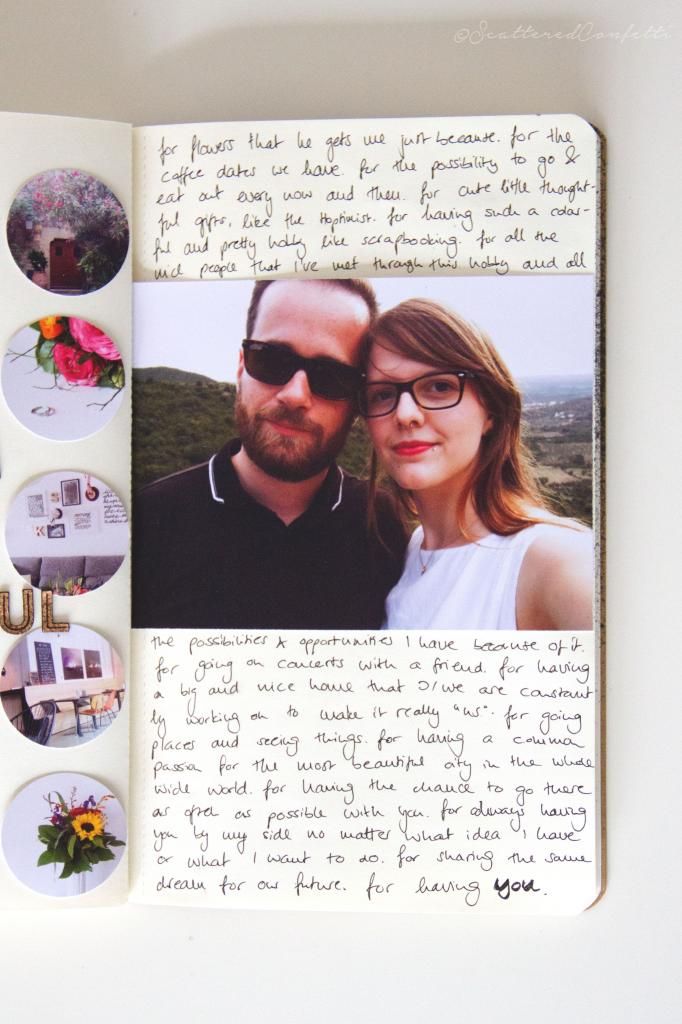 ©ScatteredConfetti
for flowers that he gets me just because. for the
coffee dates we have. for the possibility to go &
eat out every now and then. for cute little thought-
ful gifts, like the Hoptimist. for having such a color-
ful and pretty hobby like scrapbooking. for all the
nice people that I've met through this hobby and all
UL
the possibilities & opportunities I have because of it.
for going on concerts with a friend. for having
a big and nice home that I/we are constant
ly working on to make it really "us". for going
places and seeing things. for having a common
passion for the most beautiful city in the whole
wide world. for having the chance to go there
as often as possible with you. for always having
you by my side no matter what idea I have
or what I want to do. for sharing the same
dream for our future. for having you.